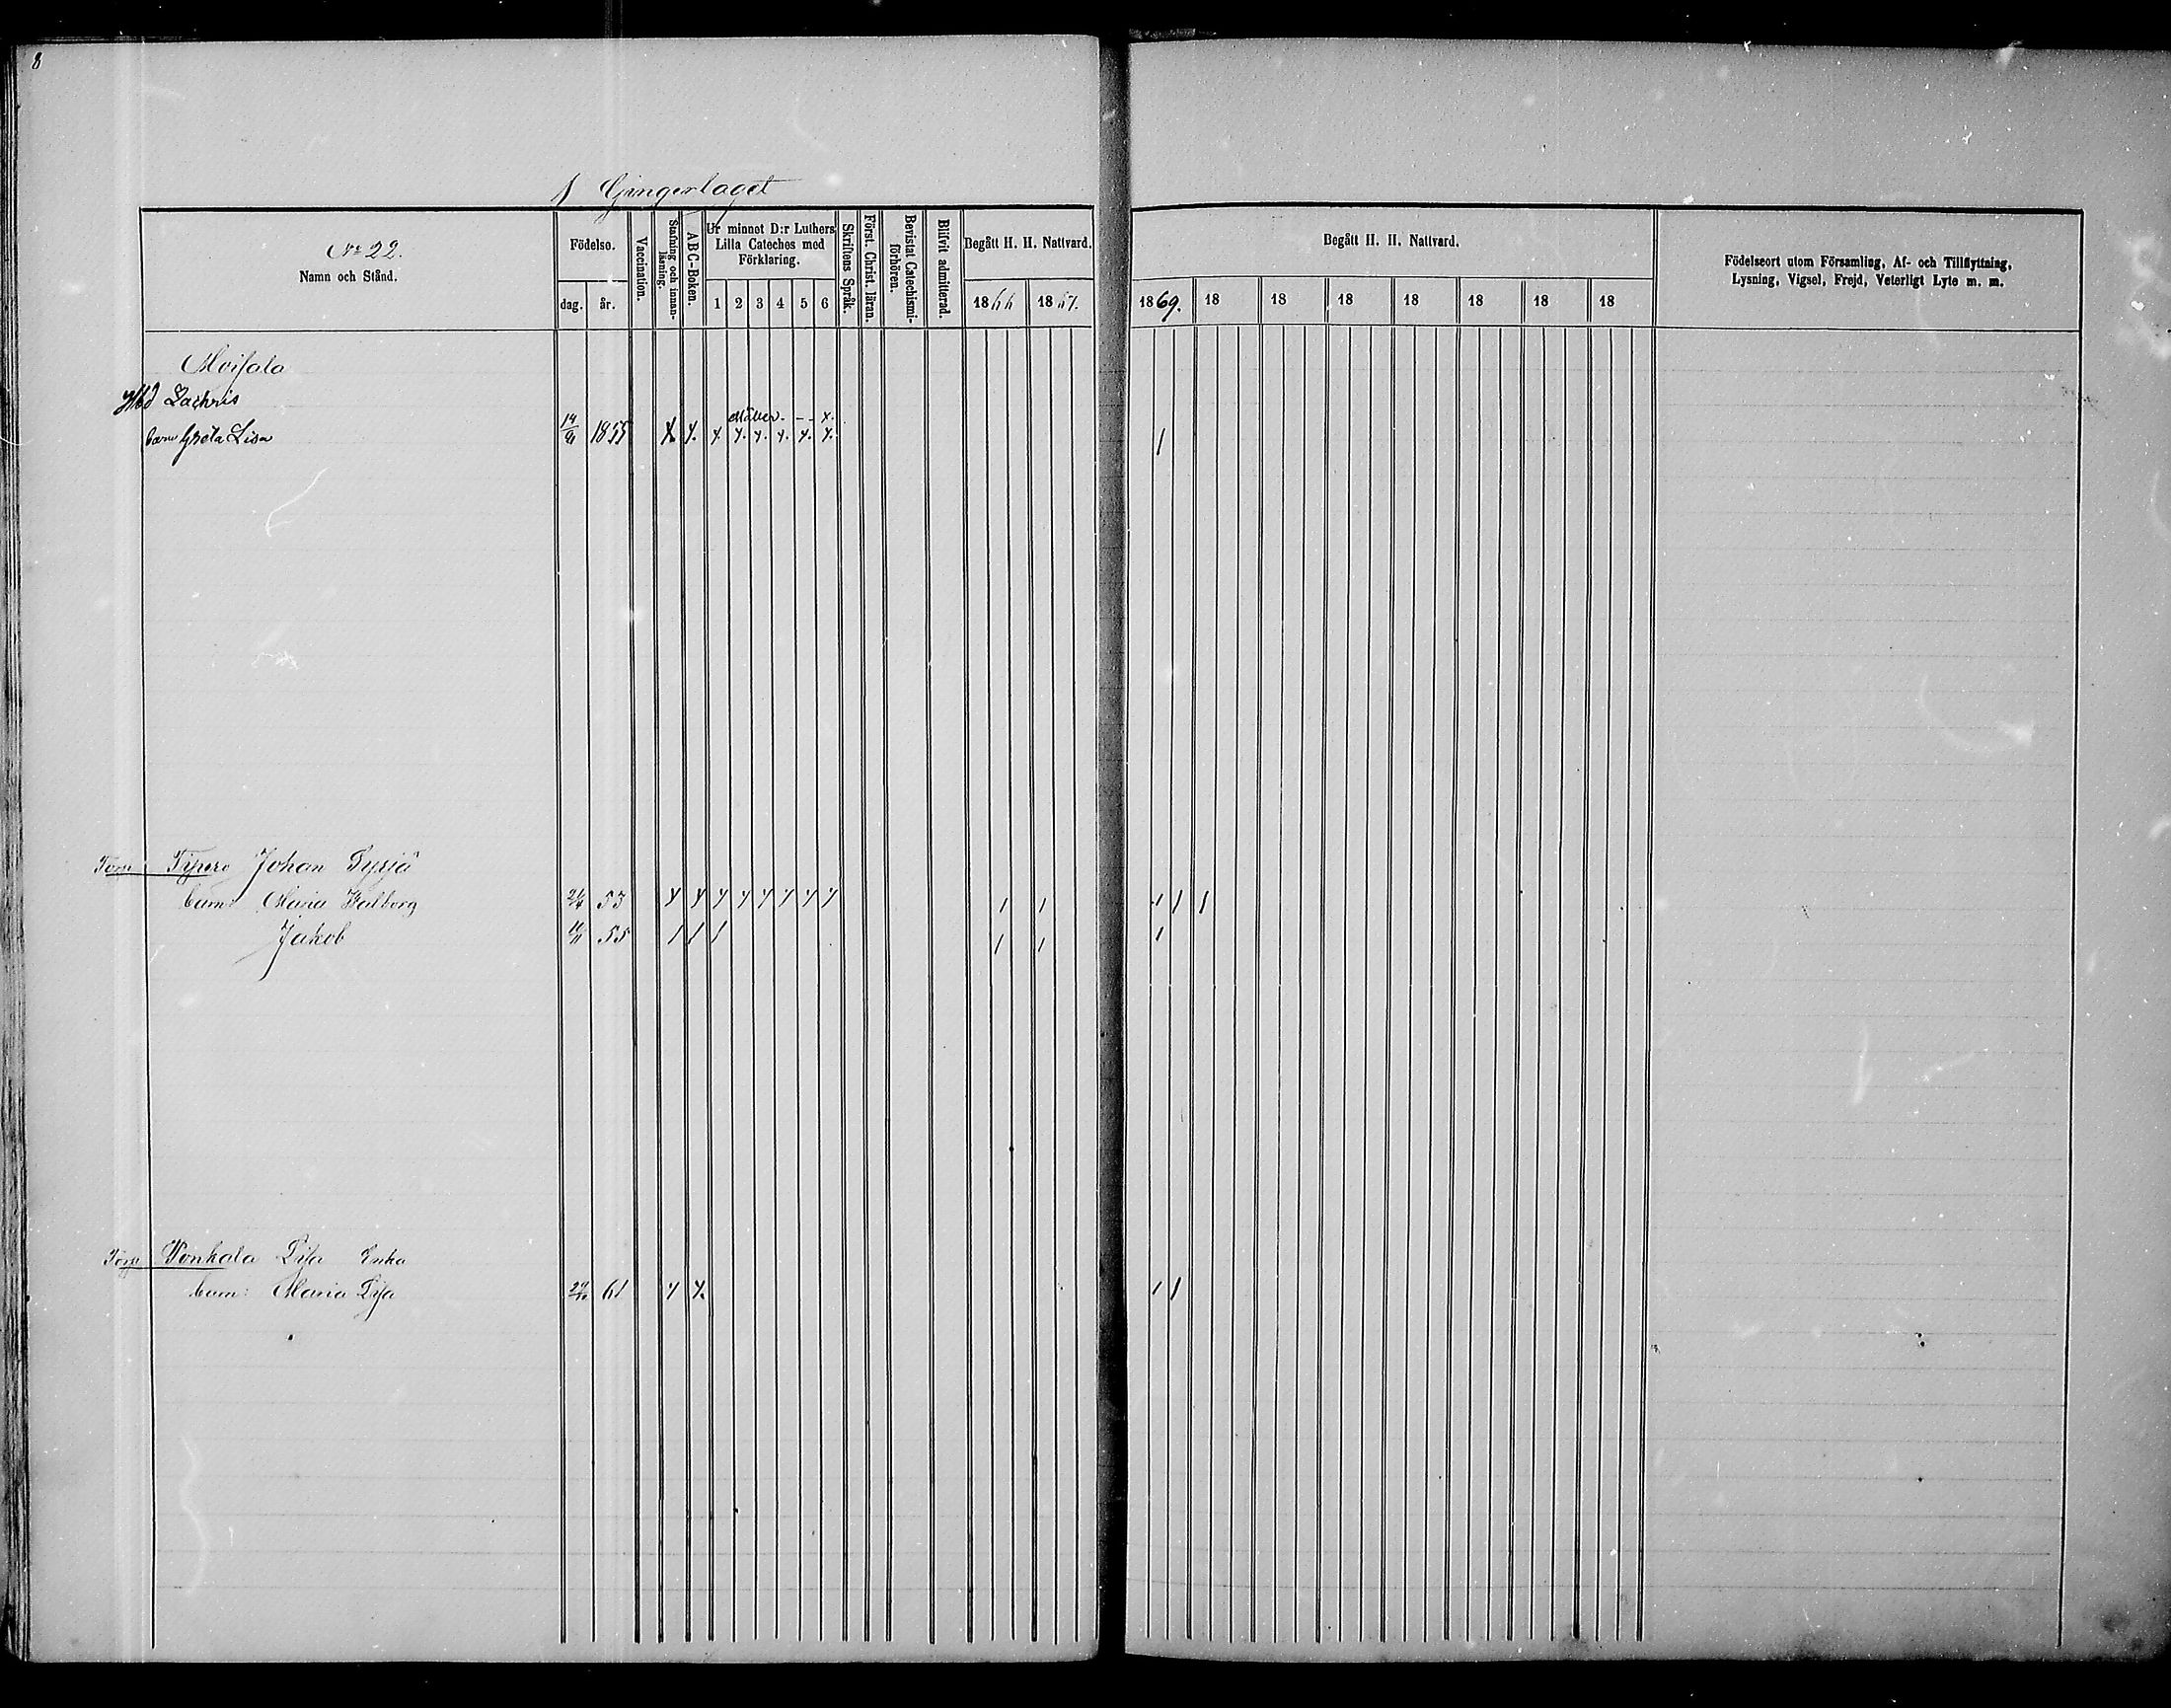 8
1 Gingerlaget
No 22.
Namn och Stånd.
Födelse.
dag. år.
Vaccination.
Stafning och innanläsning.
ABC-Boken.
Ur minnet D:r Luthers Lilla Cateches med Förklaring.
1 2 3 4 5 6
Skriftens Språk.
Först. Christ. läran.
Bevistat Catechismi-förhören.
Blifvit admitterad.
Begått H. H. Nattvard.
1866 1867.
Begått H. H. Nattvard.
1869. 18 18 18 18 18 18 18
Födelseort utom Församling, Af- och Tillflyttning,
Lysning, Vigsel, Frejd, Veterligt Lyte m. m.
Moisala
Zachris
barn Greta Lisa 1855 x x. x. x. x. x. x. x. 1
Johan Tyrjä
barn: Maria Walborg 53 x x x x x x x x 1 1 1 1 1
Jakob 55 1 1 1 1 1 1
Ponkala Lisa Enka
barn: Maria Lisa 61 x x. 1 1